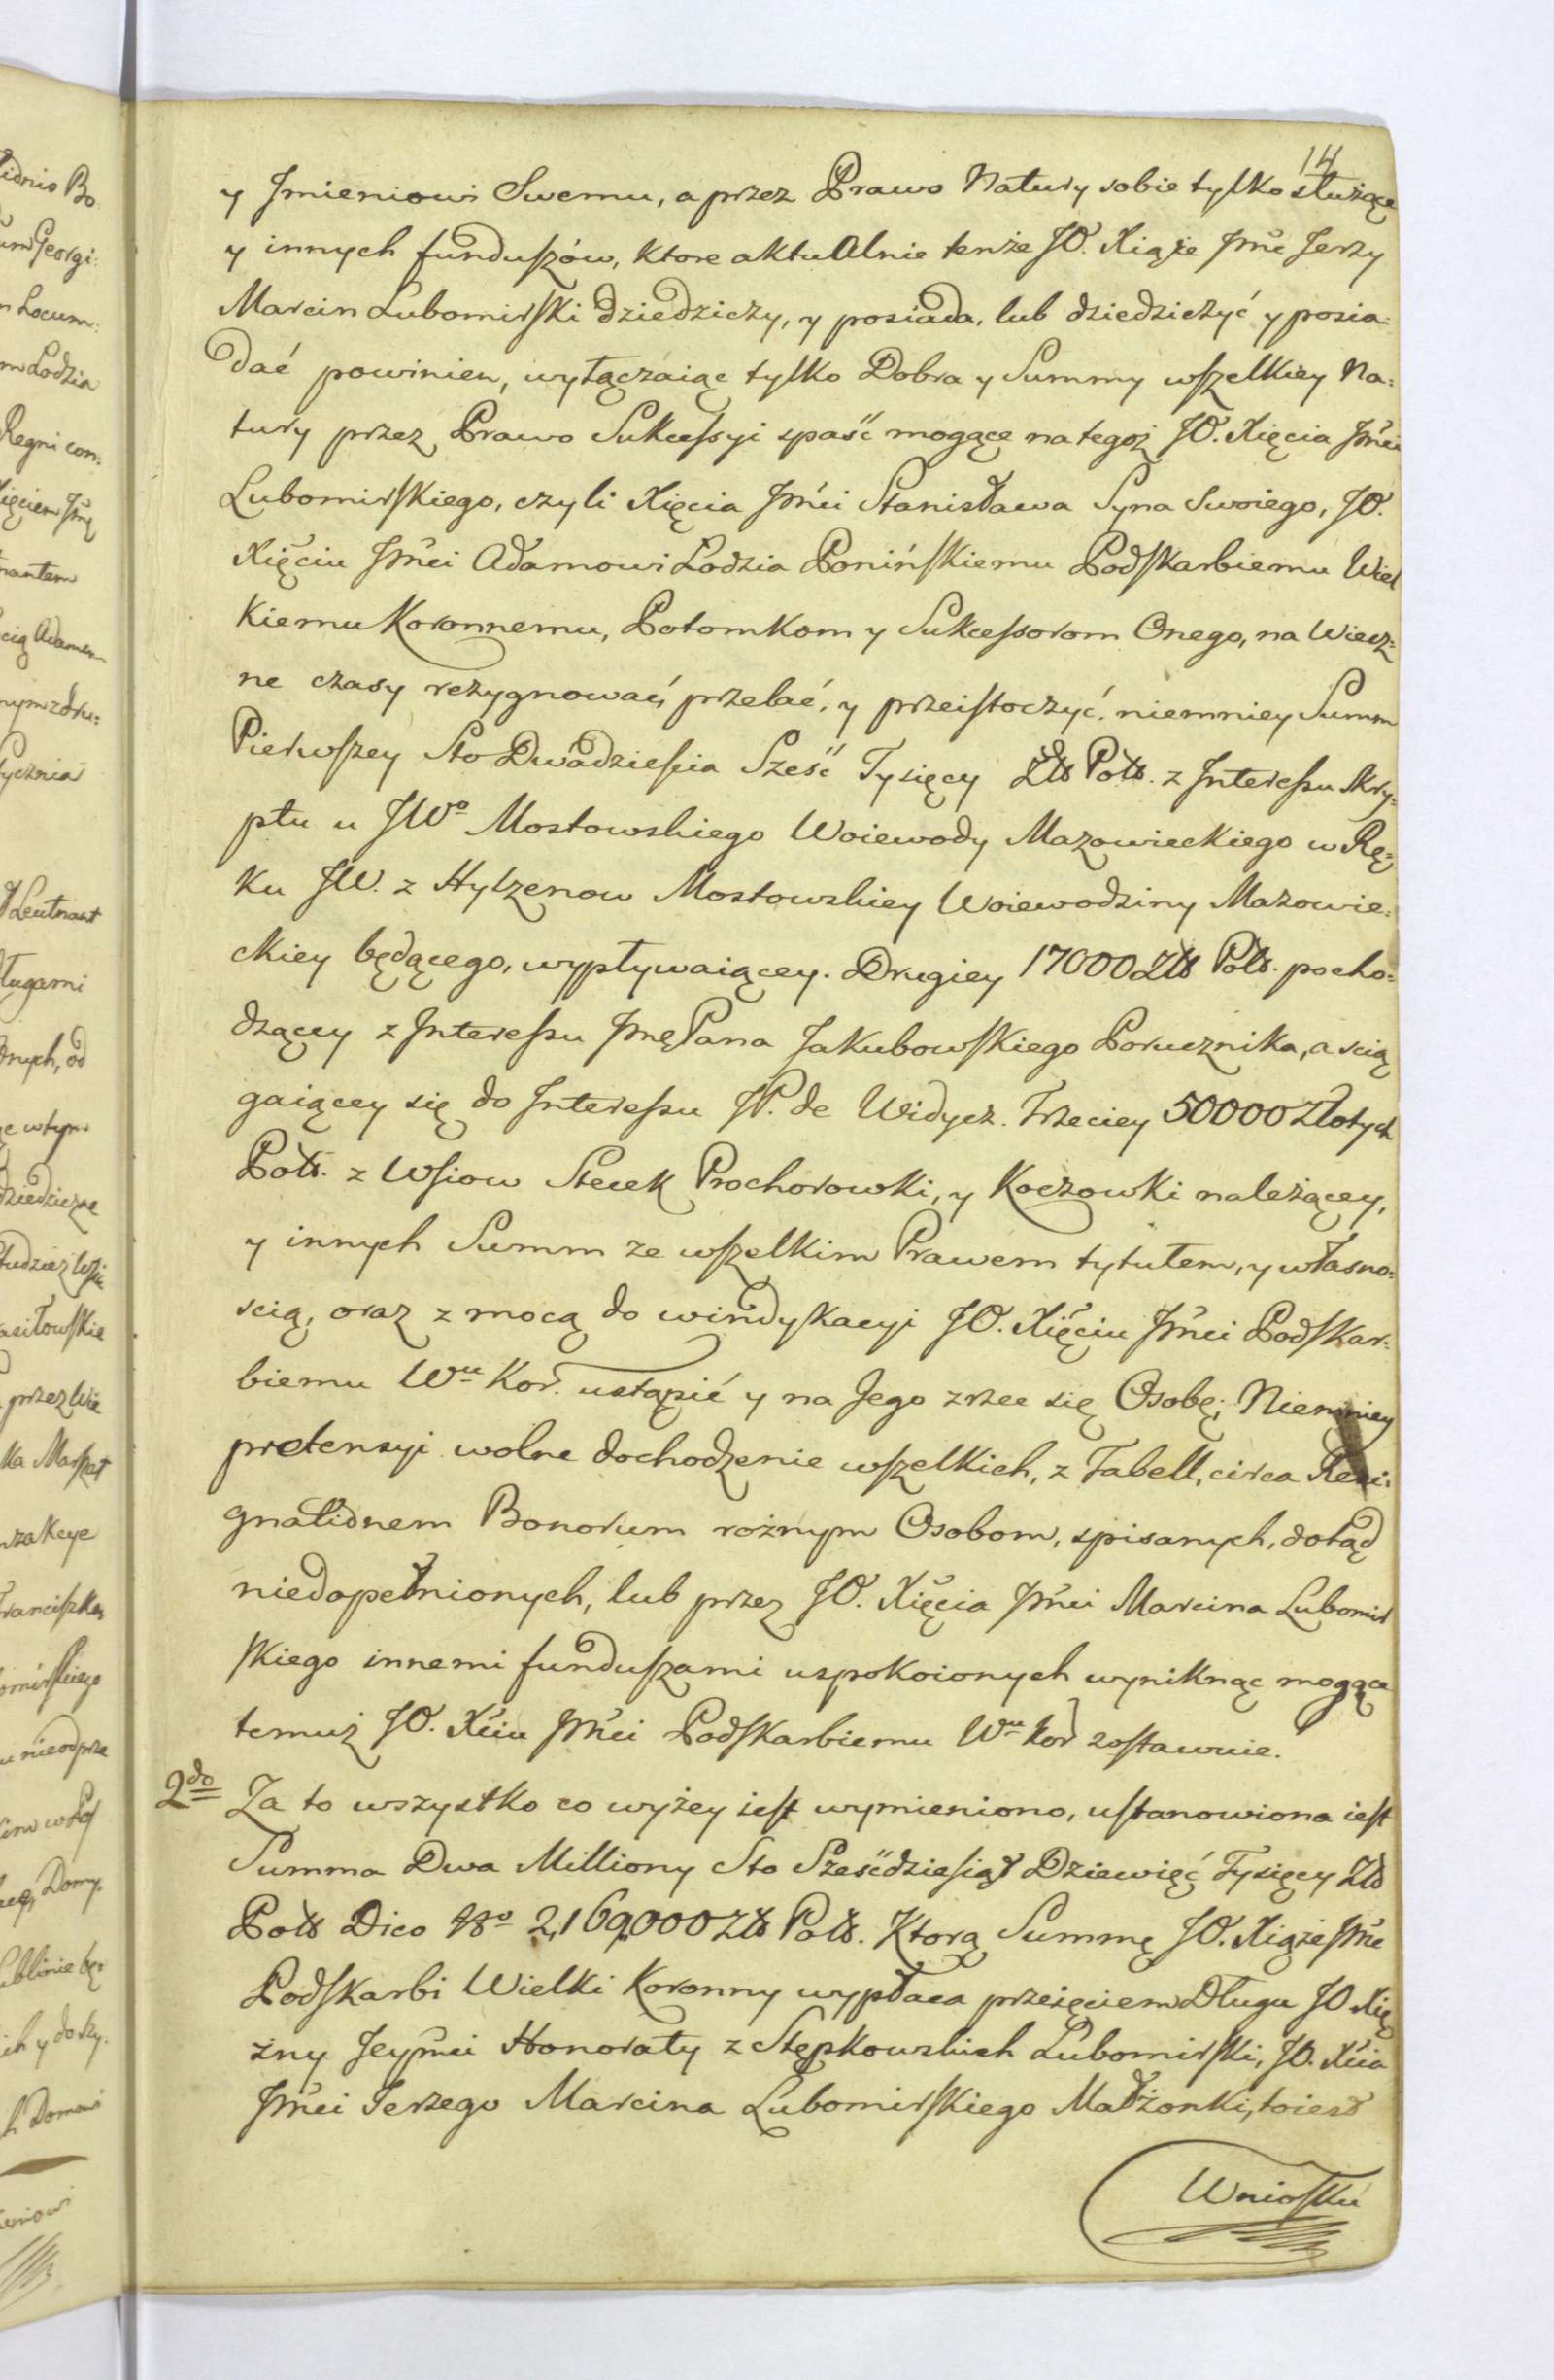 14
y Jmieniowi Swemu, a przez Prawo Natury sobie tylko służące
y innych funduszów, ktore aktualnie tenże JO. Xiąże Jmć Jerzy
Marcin Lubomirski dziedziczy, y posiada, lub dziedziczyć y posia:
dać powinien, wyłączaiąc tylko Dobra y Summy wszelkiey Na:
tury przez Prawo Sukcessyi spaść mogące na tegoż JO. Xięcia Jmci
Lubomirskiego, czyli Xięcia Jmci Stanisława Syna Swoiego, JO.
Xięciu Jmci Adamowi Lodzia Ponińskiemu Podskarbiemu Wiel
kiemu Koronnemu, Potomkom y Sukcessorom Onego, na Wiecz:
ne czasy rezygnować, przelać, y przeistoczyć, niemniey Summ
Pierwszey Sto Dwadziescia Sześć Tysięcy Złł Polł. z Interessu Skry:
ptu u JWo Mostowskiego Woiewody Mazowieckiego w Rę:
ku JW. z Hylzenow Mostowskiey Woiewodziny Mazowie:
ckiey będącego, wypływaiącey. Drugiey 17000 Złł Polł. pocho:
dzącey z Interessu Jmć Pana Jakubowskiego Porucznika, a scią
gaiącey się do Interessu JP. de Widycz. Trzeciey 50000 Złotych
Polł. z Wsiow Stecek Prochorowki, y Koczowki należącey,
y innych Summ ze wszelkim Prawem tytułem, y własno:
scią, oraz z mocą do windykacyi JO. Xięciu Jmci Podskar:
biemu Wu Kor. ustąpić y na Jego zrzec się Osobę; Niemniey
pretensyi wolne dochodzenie wszelkich, z Tabell, circa Resi:
gnationem Bonorum rożnym Osobom, spisanych, dotąd
niedopełnionych, lub przez JO. Xięcia Jmci Marcina Lubomir
skiego innemi funduszami uspokoionych wyniknąc mogące
temuż JO. Xciu Jmci Podskarbiemu Wu Kor zostawuie.
2do Za to wszystko co wyżey iest wymieniono, ustanowiona iest
Summa Dwa Milliony Sto Sześćdziesiąt Dziewięć Tysięcy Złł
Polł Dico No 2,169,000 Złł Polł. Ktorą Summę JO. Xiąże Jmć
Podskarbi Wielki Koronny wypłaca przeięciem Długu JO Xię
żny Jeymci Honoraty z Stępkowskich Lubomirski, JO. Xcia
Jmci Jerzego Marcina Lubomirskiego Małżonki, toiest
Wniosku